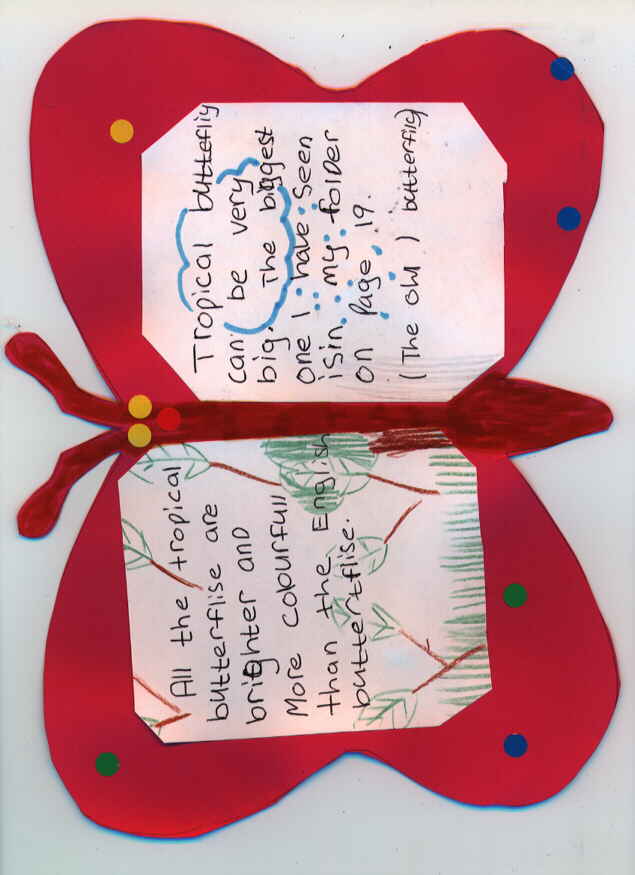 All the tropical
butterflise are
brighter and
More colourfull
than the English
buttertflise.
Tropical butteflīy
can be very
big. The biggest
one I have seen
isin my folder
on Page 19.
(The owl) butterfliy)